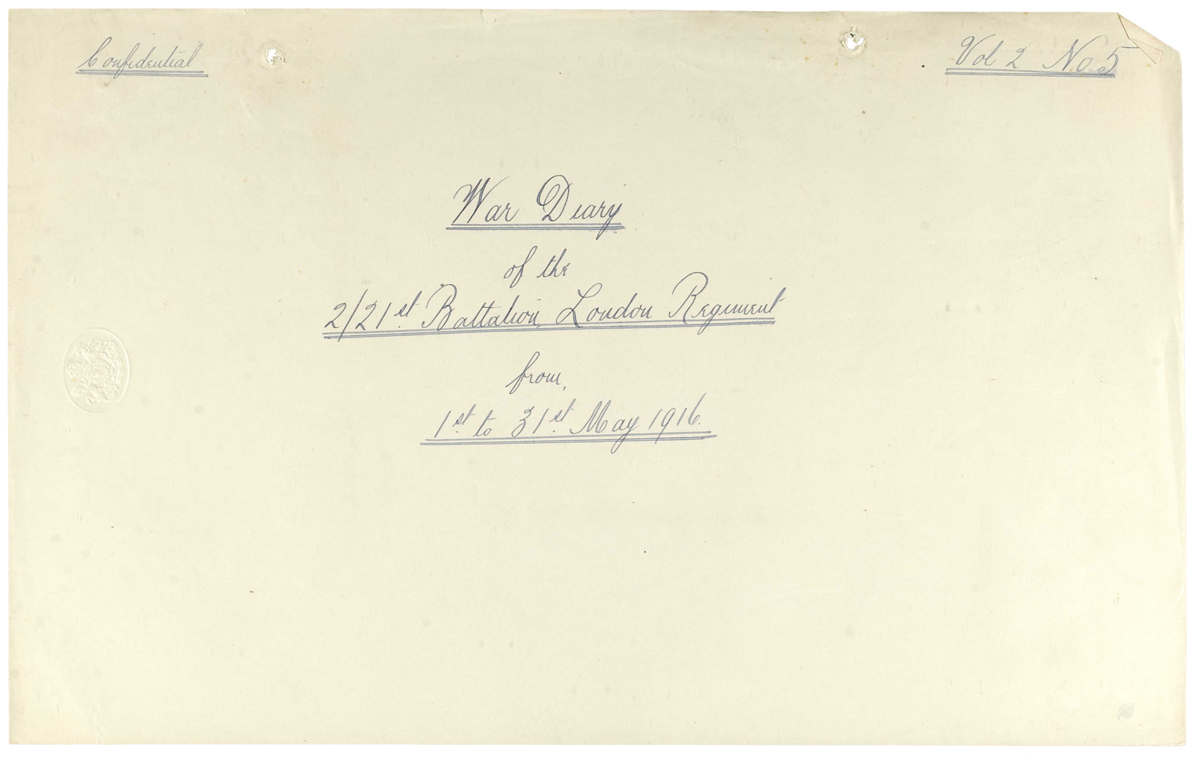 Confidential
Vol 2 No 5
War Diary
of the
2/21st Battalion, London Regiment
from,
1st to 31st May 1916.